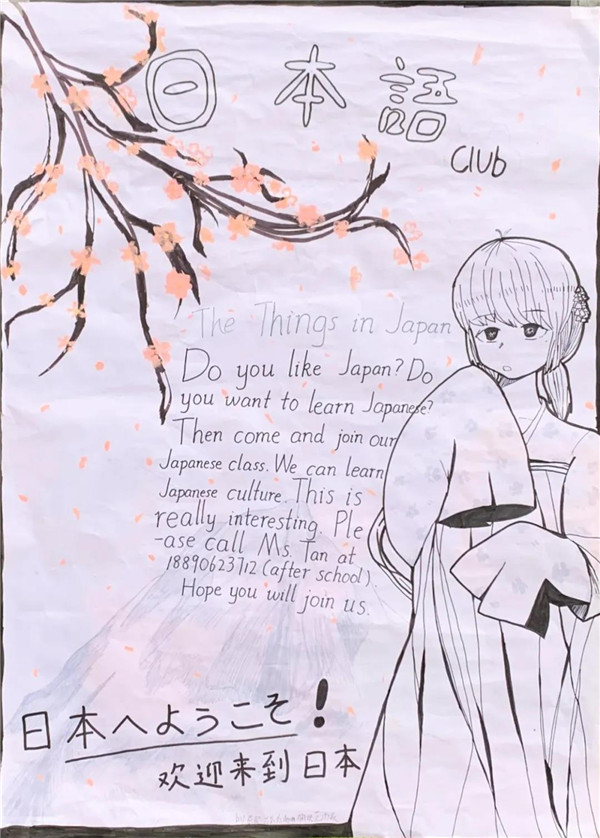 日本語
Club
The Things in Japan
Do you like Japan? Do
you want to learn Japanese?
Then come and join our
Japanese class. We can learn
Japanese culture. This is
really interesting. Ple
-ase call Ms. Tan at
18890623712 (after school).
Hope you will join us.
日本へようこそ！
欢迎来到日本